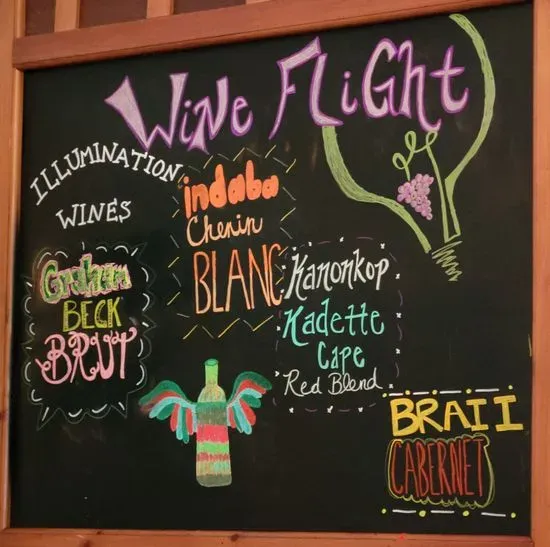 WiNe FLiGht
ILLUMINATION
WINES
indaba
Chenin
BLANC
Graham
BECK
BRUT
Kanonkop
Kadette
Cape
Red Blend
BRAII
CABERNET